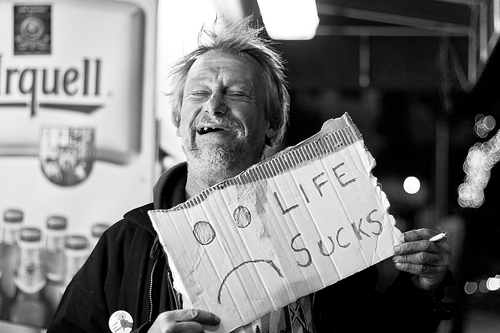 rquell
LIFE
SUCKS